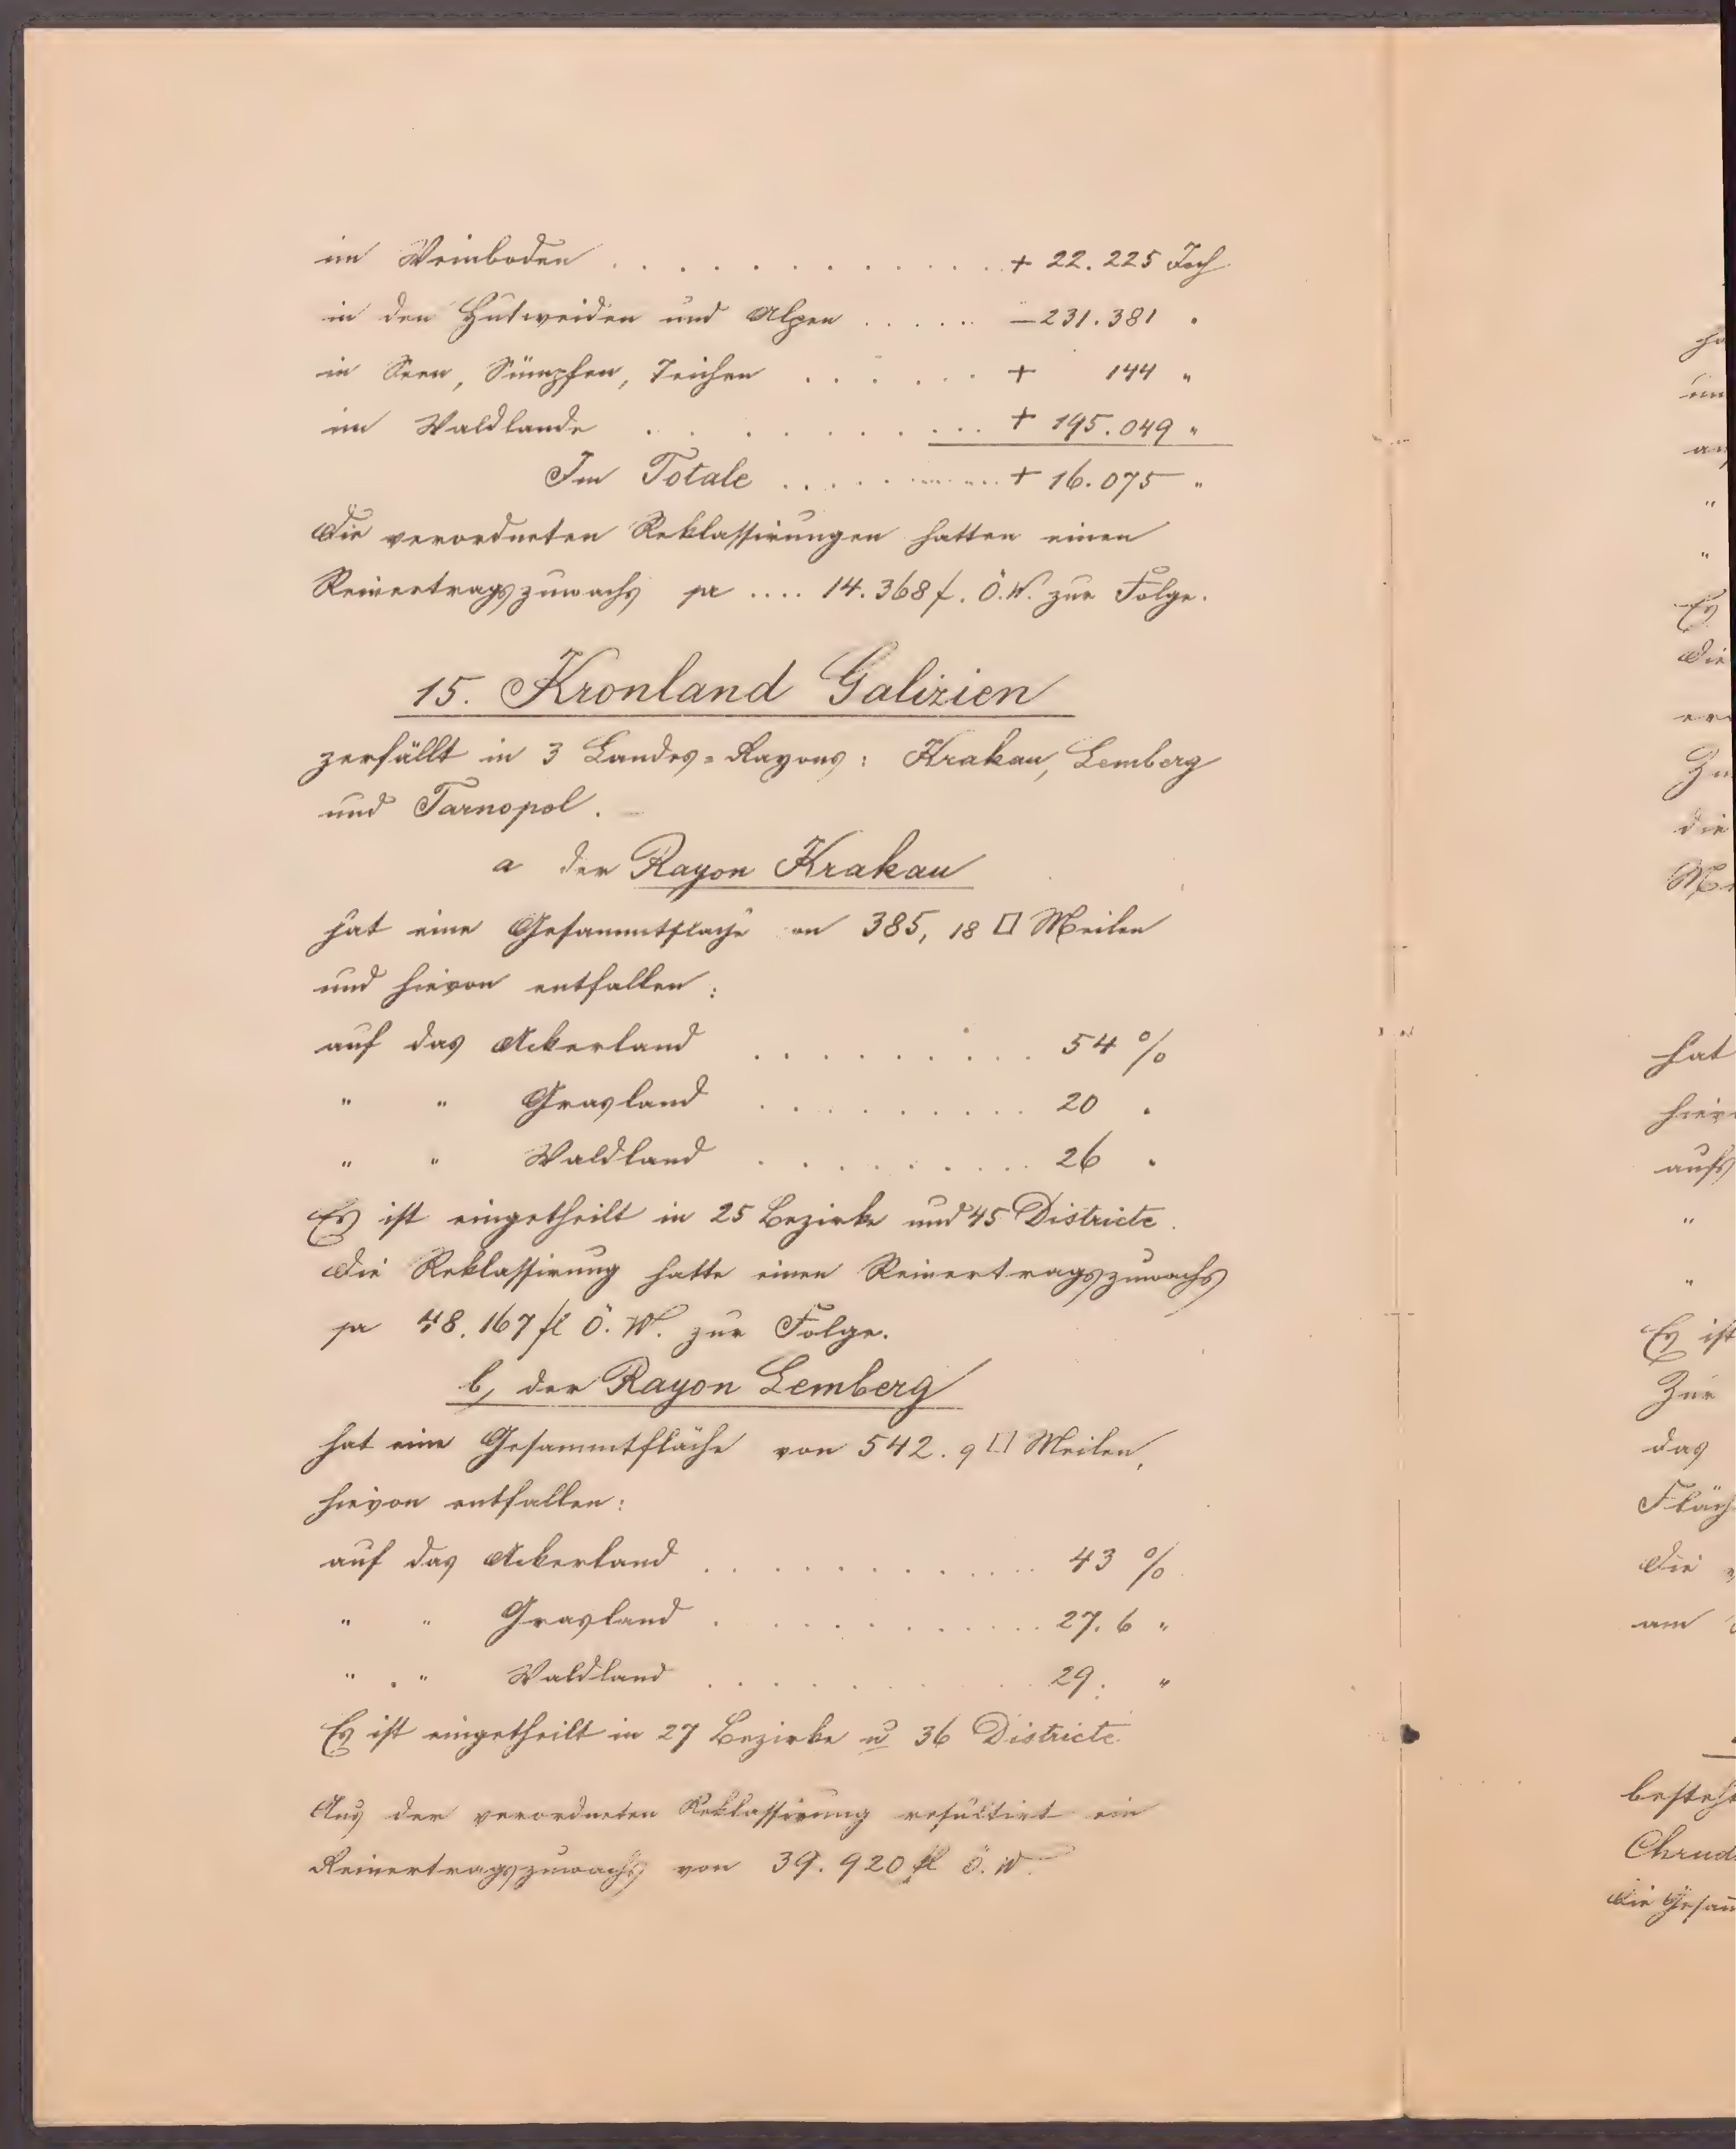 im Weinboden . . . . . . . . . . . . . + 22.225 Joch
in den Hutweiden und Alpen . . . . . . – 231.381 "
in Seen, Sümpfen, Teichen . . . . . . . + 144 "
im Waldlande . . . . . . . . . . . + 195.049 "
Im Totale . . . . . . . . . . . + 16.075 "
Die verordneten Reklassirungen hatten einen
Reinertragszuwachs pr .... 14.368 f. Ö.W. zur Folge.
15. Kronland Galizien
zerfällt in 3 Landes-Rayons: Krakau, Lemberg
und Tarnopol.
a der Rayon Krakau
hat eine Gesammtfläche von 385,18 □ Meilen
und hievon entfallen:
auf das Ackerland . . . . . . . . . . 54 %
" " Grasland . . . . . . . . . . 20 "
" " Waldland . . . . . . . . . . 26 "
Es ist eingetheilt in 25 Bezirke und 45 Districte.
Die Reklassirung hatte einen Reinertragszuwachs
pr 48.167 fl Ö.W. zur Folge.
b, der Rayon Lemberg
hat eine Gesammtfläche von 542.9 □ Meilen,
hievon entfallen:
auf das Ackerland . . . . . . . . . . . . 43 %
" " Grasland . . . . . . . . . . . . 27.6 "
" " Waldland . . . . . . . . . . 29. "
Es ist eingetheilt in 27 Bezirke u 36 Districte.
Aus der verordneten Reklassirung resultirt ein
Reinertragszuwachs von 39.920 fl ö.W.
hat
Es ist
das
Die
am